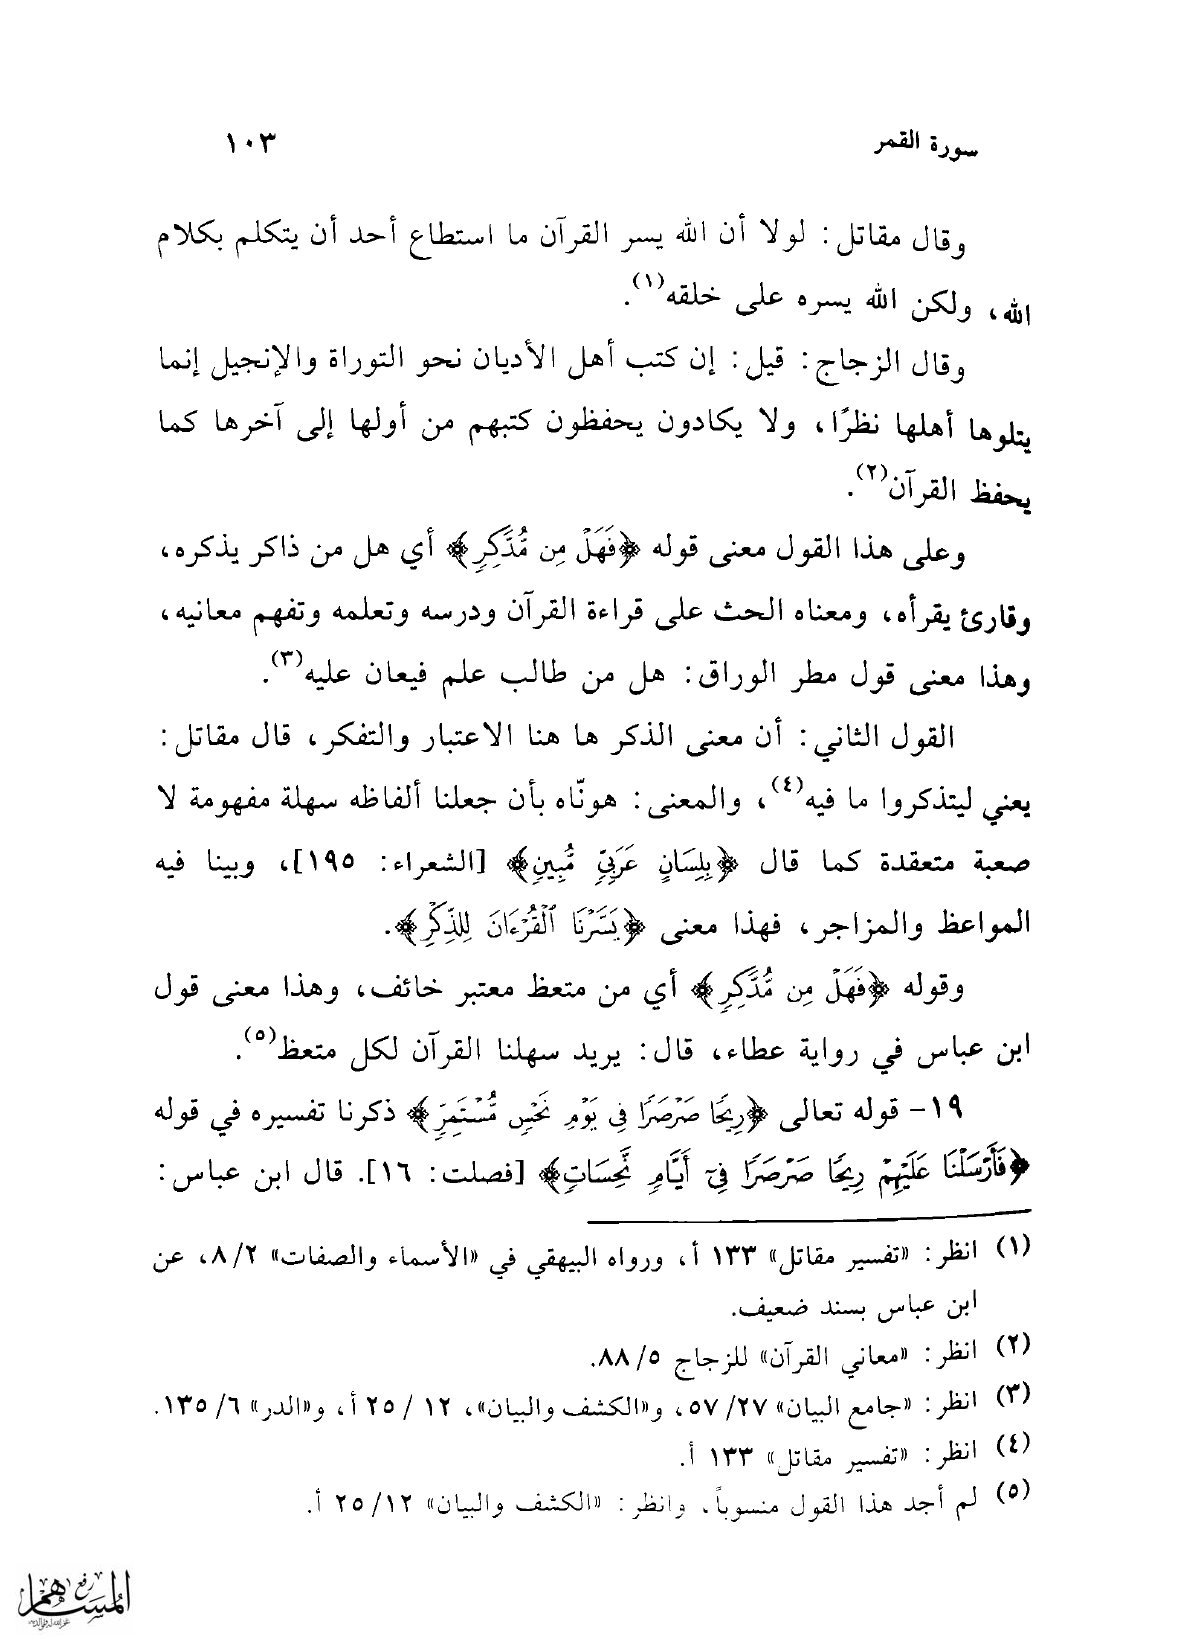 سورة القمر
١٠٣
وقال مقاتل: لولا أن الله يسر القرآن ما استطاع أحد أن يتكلم بكلام
الله، ولكن الله يسره على خلقه(١).
وقال الزجاج: قيل: إن كتب أهل الأديان نحو التوراة والإنجيل إنما
يتلوها أهلها نظرًا، ولا يكادون يحفظون كتبهم من أولها إلى آخرها كما
يحفظ القرآن(٢).
وعلى هذا القول معنى قوله ﴿فَهَلْ مِن مُّدَّكِرٍ﴾ أي هل من ذاكر يذكره،
وقارئ يقرأه، ومعناه الحث على قراءة القرآن ودرسه وتعلمه وتفهم معانيه،
وهذا معنى قول مطر الوراق: هل من طالب علم فيعان عليه(٣).
القول الثاني: أن معنى الذكر ها هنا الاعتبار والتفكر، قال مقاتل:
يعني ليتذكروا ما فيه(٤)، والمعنى: هونّاه بأن جعلنا ألفاظه سهلة مفهومة لا
صعبة متعقدة كما قال ﴿بِلِسَانٍ عَرَبِيٍّ مُّبِينٍ﴾ [الشعراء: ١٩٥]، وبينا فيه
المواعظ والمزاجر، فهذا معنى ﴿يَسَّرْنَا الْقُرْءَانَ لِلذِّكْرِ﴾.
وقوله ﴿فَهَلْ مِن مُّدَّكِرٍ﴾ أي من متعظ معتبر خائف، وهذا معنى قول
ابن عباس في رواية عطاء، قال: يريد سهلنا القرآن لكل متعظ(٥).
١٩- قوله تعالى ﴿رِيحًا صَرْصَرًا فِي يَوْمِ نَحْسٍ مُّسْتَمِرٍّ﴾ ذكرنا تفسيره في قوله
﴿فَأَرْسَلْنَا عَلَيْهِمْ رِيحًا صَرْصَرًا فِي أَيَّامٍ نَّحِسَاتٍ﴾ [فصلت: ١٦]. قال ابن عباس:
(١) انظر: «تفسير مقاتل» ١٣٣ أ، ورواه البيهقي في «الأسماء والصفات» ٨/٢، عن
ابن عباس بسند ضعيف.
(٢) انظر: «معاني القرآن» للزجاج ٨٨/٥.
(٣) انظر: «جامع البيان» ٥٧/٢٧، و«الكشف والبيان»، ١٢ / ٢٥ أ، و«الدر» ٦/ ١٣٥.
(٤) انظر: «تفسير مقاتل» ١٣٣ أ.
(٥) لم أجد هذا القول منسوباً، وانظر: «الكشف والبيان» ٢٥/١٢ أ.
رفع
المساهم